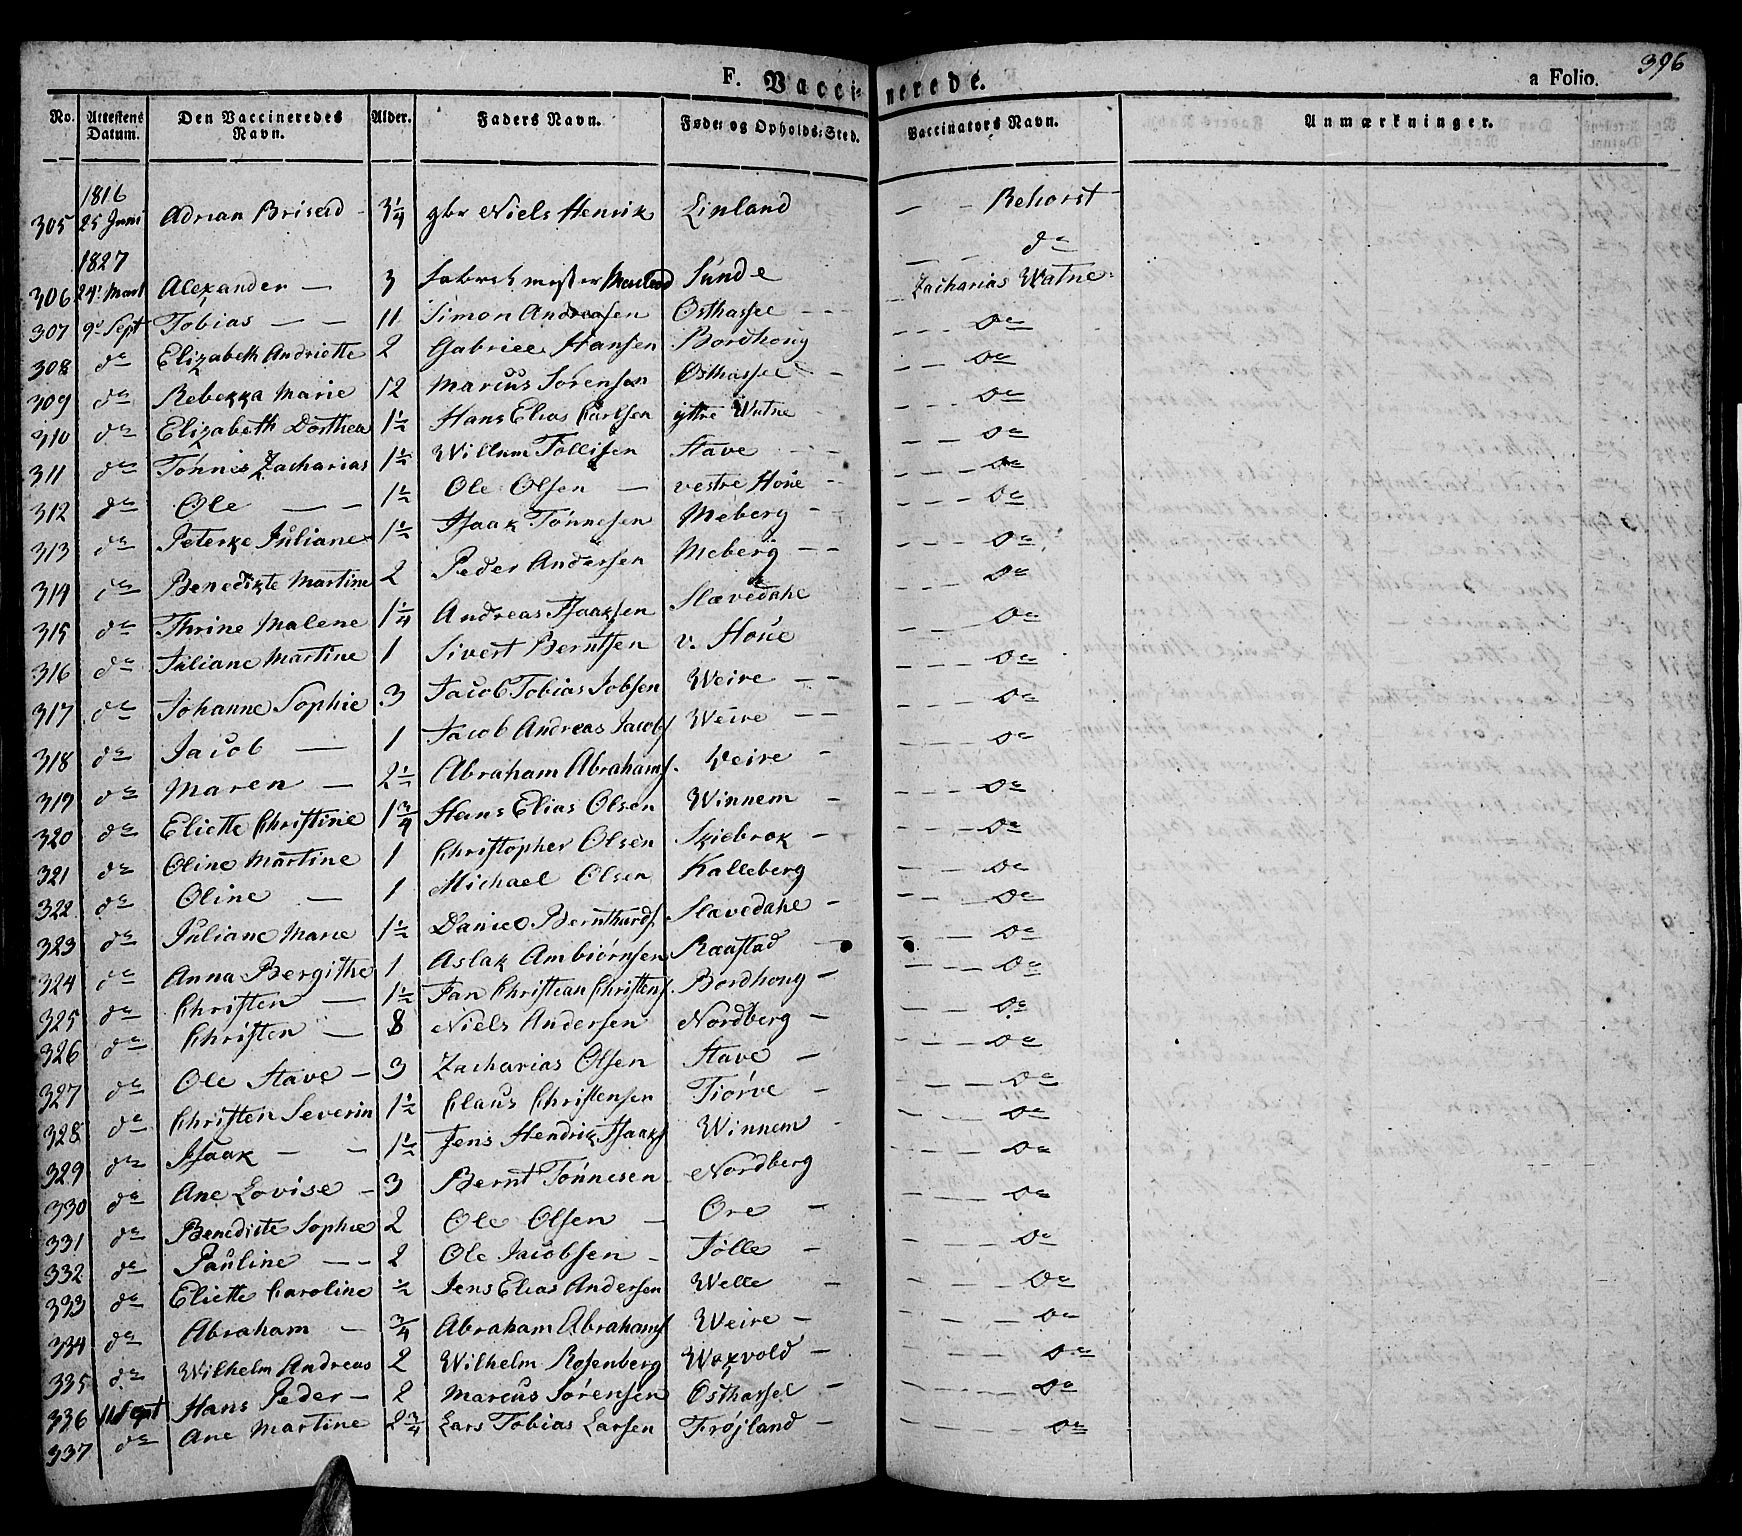 396
F. Vaccinerede. a Folio.
No. Attestens Datum. Den Vaccineredes Navn. Alder. Faders Navn. Føde- og Opholds-Sted. Vaccinators Navn. Anmærkninger.
1816
305 25 Juni Adrian Briserd 3 1/4 gbr Niels Henrik Linland — — Rehorst
1827 — — dº
306 24' Mart Alexander — 3 Sunde Zacharias Watne
307 9' Sept Tobias — — 11 Simon Andreasen Osthassel — — dº
308 dº Elizabeth Andriette 2 Gabriel Hansen Bordhoug — — dº
309 dº Rebekka Marie 12 Marcus Sørensen Østhassel — — dº
310 dº Elizabeth Dorthea 1½ Hans Elias Carlsen ÿttre Watne — — dº
311 dº Tønnes Zacharias 1½ Willum Tollisen Stave — — dº
312 dº Ole — — 1½ Ole Olsen — vestre Høÿe — — dº
313 dº Peterke Juliane 1½ Isaak Tønnesen Meberg — — dº
314 dº Benedikte Martine 2 Peder Andersen Meberg — — dº
315 dº Thrine Malene 1 1/4 Andreas Isaaksen Slævedahl — — dº
316 dº Juliane Martine 1 Sivert Berntsen v. Høÿe — — dº
317 dº Johanne Sophie 3 Jacob Tobias Jobsen Weire — — dº
318 dº Jacob — 1 Jacob Andreas Jacobs Weire — — dº
319 dº Maren — 2½ Abraham Abrahams. Veire — — dº
320 dº Eliette Christine 1 3/4 Hans Elias Olsen Winnem — — dº
321 dº Oline Martine 1 Christopher Olsen Skiebrok — — dº
322 dº Oline — 1 Michael Olsen Kalleberg — — dº
323 dº Juliane Marie 1½ Daniel Bernthards. Slævedahl — — dº
324 dº Anna Bergithe 1 Aslak Ambiørnsen Raastad — — dº
325 dº Christen — 1½ Jan Christean Christens. Bordhoug — — dº
326 dº Christen — 8 Niels Andersen Nordberg — — dº
327 dº Ole Stave — 3 Zacharias Olsen Stave — — dº
328 dº Christen Severin 1½ Claus Christensen Tiørve — — dº
329 dº Isaak — — 1½ Jens Hendrik Isaaks Winnem — — dº
330 dº Ane Lovise — 3 Bernt Tønnesen Nordberg — — dº
331 dº Benedicte Sophie 2 Ole Olsen — Ore — — dº
332 dº Pauline — — 2 Ole Jacobsen — Jølle — — dº
333 dº Eliette Caroline ½ Jens Elias Andersen Welle — — dº
334 dº Abraham — 3/4 Abraham Abrahams Weire — — dº
335 dº Wilhelm Andreas 2 Wilhelm Rosenberg Woxvold — — dº
336 11 Sept Hans Peder — 2 Marcus Sørensen Østhassel — — dº
337 dº Ane Martine 2 3/4 Lars Tobias Larsen Frøjland — — dº